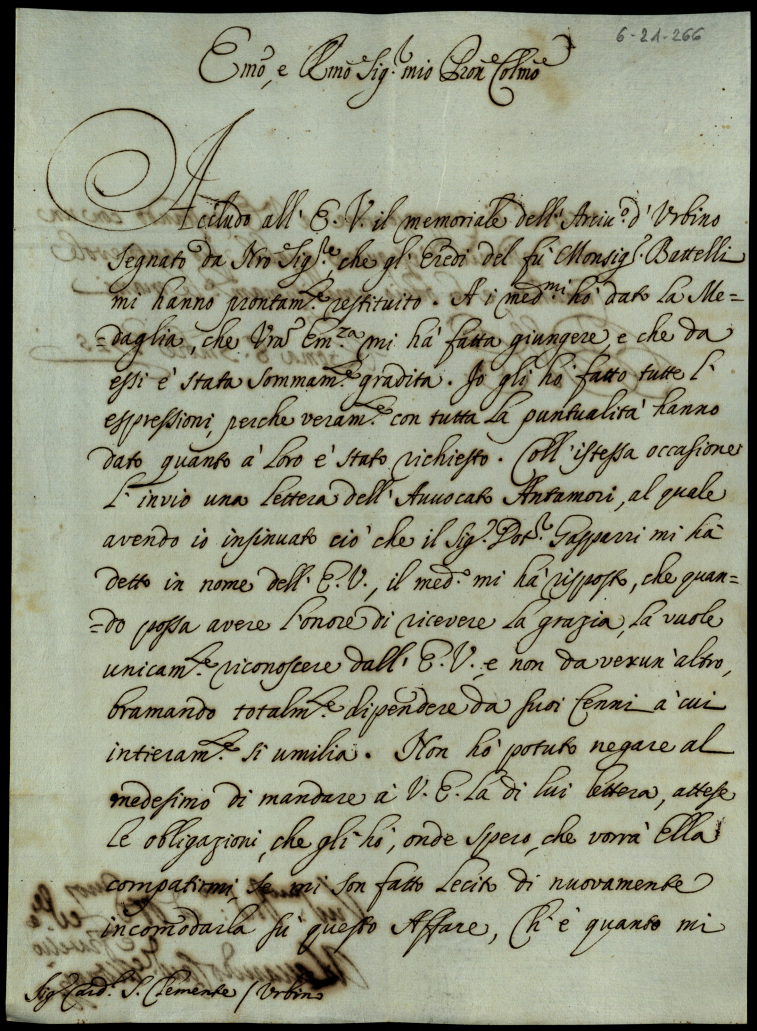 6-21-266
Emo, e Rmo Sig.r mio Pron Colmo
Accludo all' E. V. il memoriale dell' Arciv.o d' Urbino
segnato da Nro Sig.re, che gl' Eredi del fù Monsig.r Battelli
mi hanno prontam.te restituito. A i med.mi hò dato la Me=
=daglia, che Vra Em.za mi hà fatta giungere, e che da
essi è stata sommam.te gradita. Io gli hò fatto tutte l'
espressioni, perche veram.te con tutta la puntualità hanno
dato quanto à loro è stato richiesto. Coll' istessa occasione
l' invio una lettera dell' Avvocato Antamori, al quale
avendo io insinuato ciò che il Sig.r Dot.r Gasparri mi hà
detto in nome dell' E. V., il med.o mi hà risposto, che quan=
=do possa avere l'onore di ricevere la grazia, la vuole
unicam.te riconoscere dall' E. V., e non da verun' altro,
bramando totalm.te dipendere da suoi Cenni, à cui
intieram.te si umilia. Non hò potuto negare al
medesimo di mandare à V. E. la di lui lettera, attese
le obligazioni, che gli hò, onde spero, che vorrà Ella
compatirmi, se mi son fatto lecito di nuovamente
incomodarla sù questo Affare, Ch' è quanto mi
Sig. Card. S. Clemente / Urbino